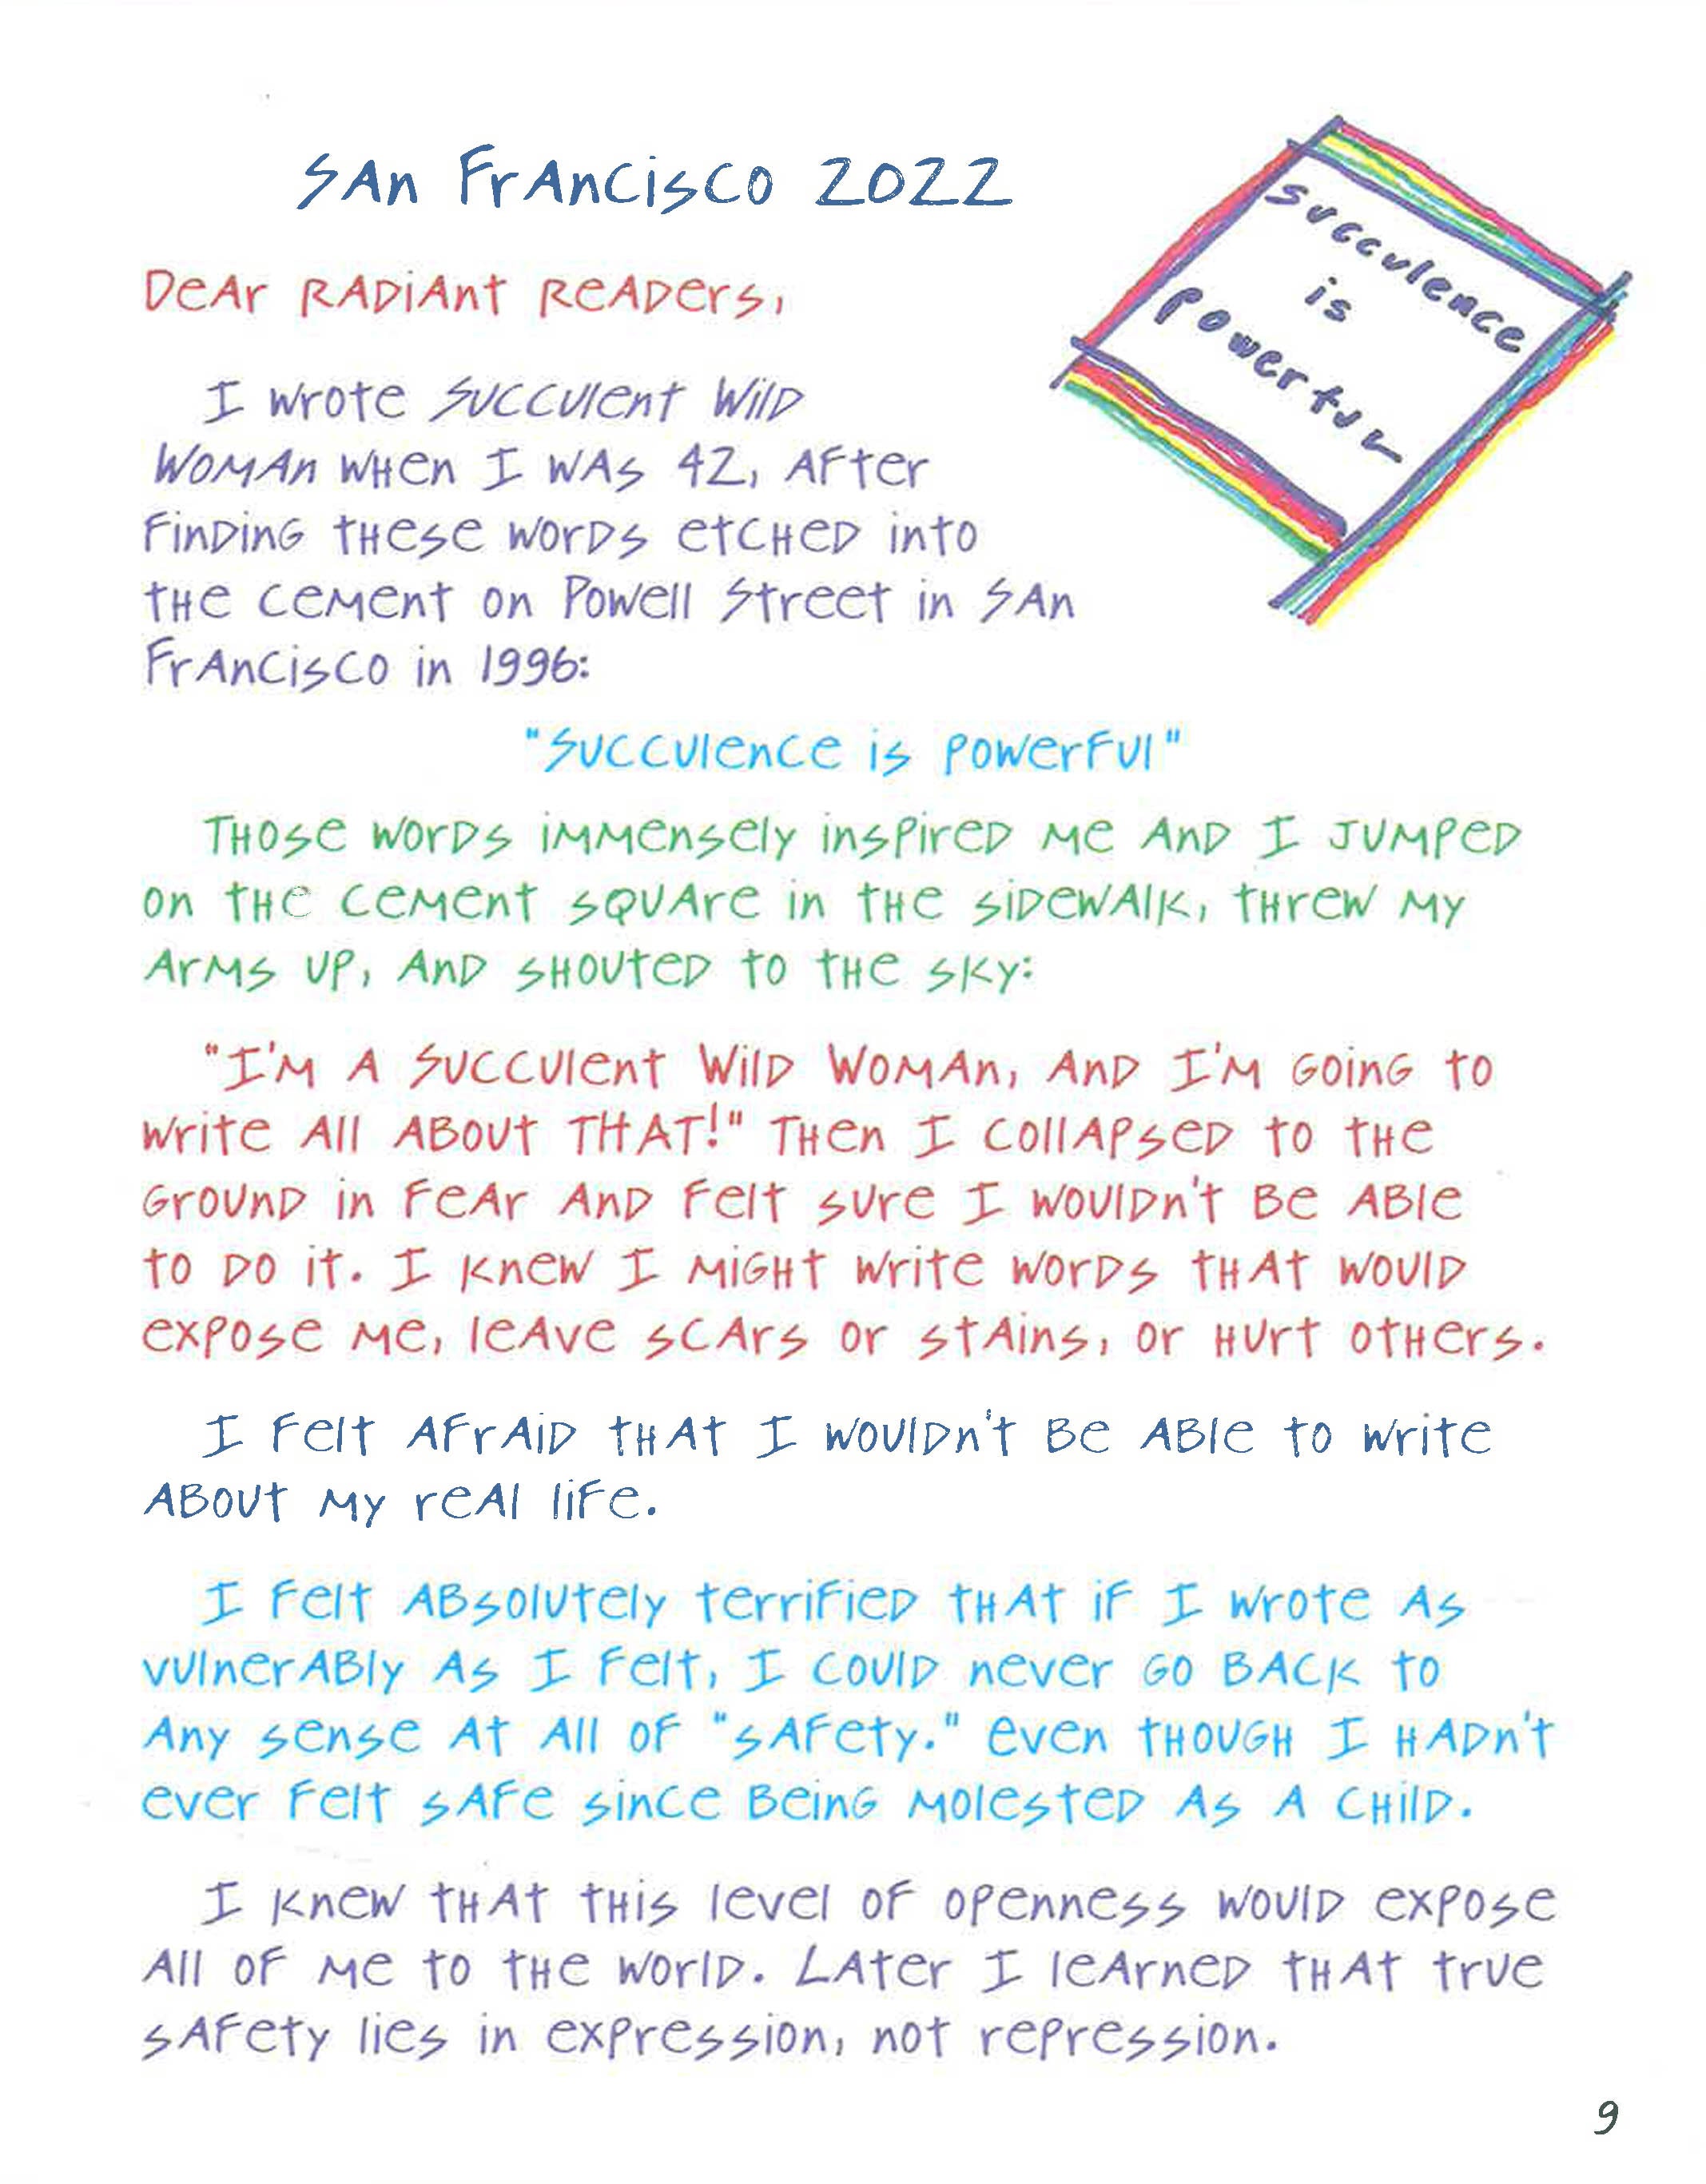 San Francisco 2022
succulence
is
powerful
Dear Radiant Readers,
I wrote Succulent Wild
Woman when I was 42, after
finding these words etched into
the cement on Powell Street in San
Francisco in 1996:
"Succulence is powerful"
Those words immensely inspired me and I jumped
on the cement square in the sidewalk, threw my
arms up, and shouted to the sky:
"I'm a Succulent Wild Woman, and I'm going to
write all about THAT!" Then I collapsed to the
ground in fear and felt sure I wouldn't be able
to do it. I knew I might write words that would
expose me, leave scars or stains, or hurt others.
I felt afraid that I wouldn't be able to write
about my real life.
I felt absolutely terrified that if I wrote as
vulnerably as I felt, I could never go back to
any sense at all of "safety." Even though I hadn't
ever felt safe since being molested as a child.
I knew that this level of openness would expose
all of me to the world. Later I learned that true
safety lies in expression, not repression.
9